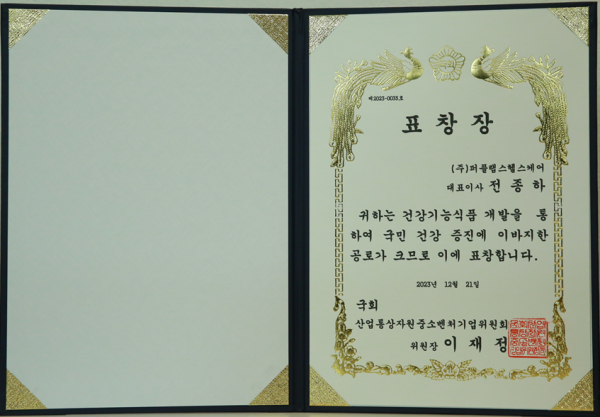 제2023-0033호
표창장
(주)퍼플랩스헬스케어
대표이사 전종하
귀하는 건강기능식품 개발을 통
하여 국민 건강 증진에 이바지한
공로가 크므로 이에 표창합니다.
2023년 12월 21일
국회
산업통상자원중소벤처기업위원회
위원장 이재정